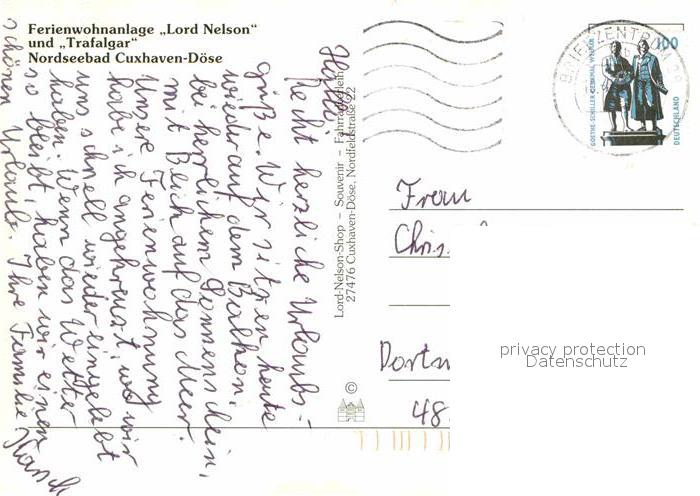 Ferienwohnanlage „Lord Nelson“
und „Trafalgar“
Nordseebad Cuxhaven-Döse
Hallo!
Recht herzliche Urlaubs-
grüße. Wir sitzen heute
wieder auf dem Balkon,
bei herrlichem Sonnenschein,
mit Blick auf das Meer.
Unsere Ferienwohnung
habe ich angekreuzt, wo wir
uns schnell wieder eingelebt
haben. Wenn das Wetter
so bleibt, haben wir einen
schönen Urlaub. Ihre Familie
Lord-Nelson-Shop – Souvenir – Fahrradverleih
27476 Cuxhaven-Döse, Nordfeldstraße 22
©
BRIEFZENTRUM
100
GOETHE-SCHILLER-DENKMAL WEIMAR
DEUTSCHLAND
Frau
Chris
Dortm
48
privacy protection
Datenschutz